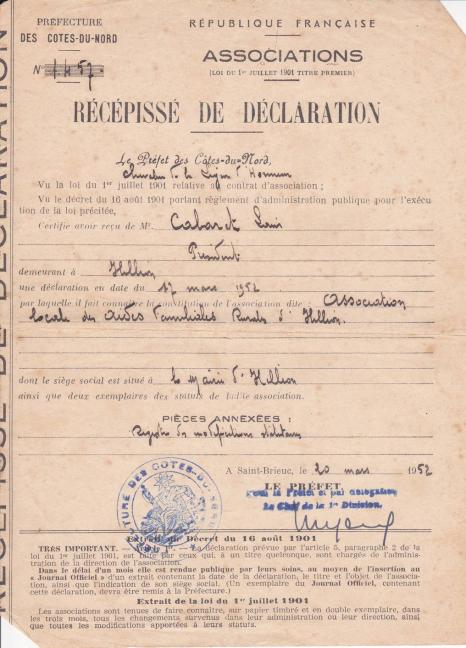 PRÉFECTURE
DES COTES-DU-NORD
Nº 1457
RÉPUBLIQUE FRANÇAISE
ASSOCIATIONS
(LOI DU 1er JUILLET 1901 TITRE PREMIER)
RÉCÉPISSÉ DE DÉCLARATION
Le Préfet des Côtes-du-Nord,
Chevalier de la Légion d'Honneur
Vu la loi du 1er juillet 1901 relative au contrat d'association ;
Vu le décret du 16 août 1901 portant règlement d'administration publique pour l'exécu
tion de la loi précitée,
Certifie avoir reçu de Mr. Cabaret Louis
Président
demeurant à Hillion
une déclaration en date du 17 mars 1952
par laquelle il fait connaître la constitution de l'association dite : Association
locale des Aides Familiales Rurales d'Hillion.
dont le siège social est situé à la Mairie d'Hillion
ainsi que deux exemplaires des statuts de ladite association.
PIÈCES ANNEXÉES :
Registre des modifications statutaires
A Saint-Brieuc, le 20 mars 1952
LE PRÉFET,
Pour le Préfet et par délégation
Le Chef de la 1re Division,
Extrait du Décret du 16 août 1901
TRÈS IMPORTANT. — Article 1er. — La déclaration prévue par l'article 5, paragraphe 2 de la
loi du 1er juillet 1901, est faite par ceux qui, à un titre quelconque, sont chargés de l'adminis-
tration de la direction de l'association.
Dans le délai d'un mois elle est rendue publique par leurs soins, au moyen de l'insertion au
« Journal Officiel » d'un extrait contenant la date de la déclaration, le titre et l'objet de l'associa-
tion, ainsi que l'indication de son siège social. (Un exemplaire du Journal Officiel, contenant
cette déclaration, devra être remis à la Préfecture.)
Extrait de la loi du 1er juillet 1901
Les associations sont tenues de faire connaître, sur papier timbré et en double exemplaire, dans
les trois mois, tous les changements survenus dans leur administration ou leur direction, ainsi
que toutes les modifications apportées à leurs statuts.
RÉCÉPISSÉ DE DÉCLARATION